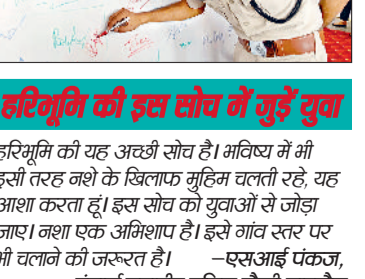 हरिभूमि की इस सोच में जुड़ें युवा
हरिभूमि की यह अच्छी सोच है। भविष्य में भी
इसी तरह नशे के खिलाफ मुहिम चलती रहे, यह
आशा करता हूं। इस सोच को युवाओं से जोड़ा
जाए। नशा एक अभिशाप है। इसे गांव स्तर पर
भी चलाने की जरूरत है। –एसआई पंकज,